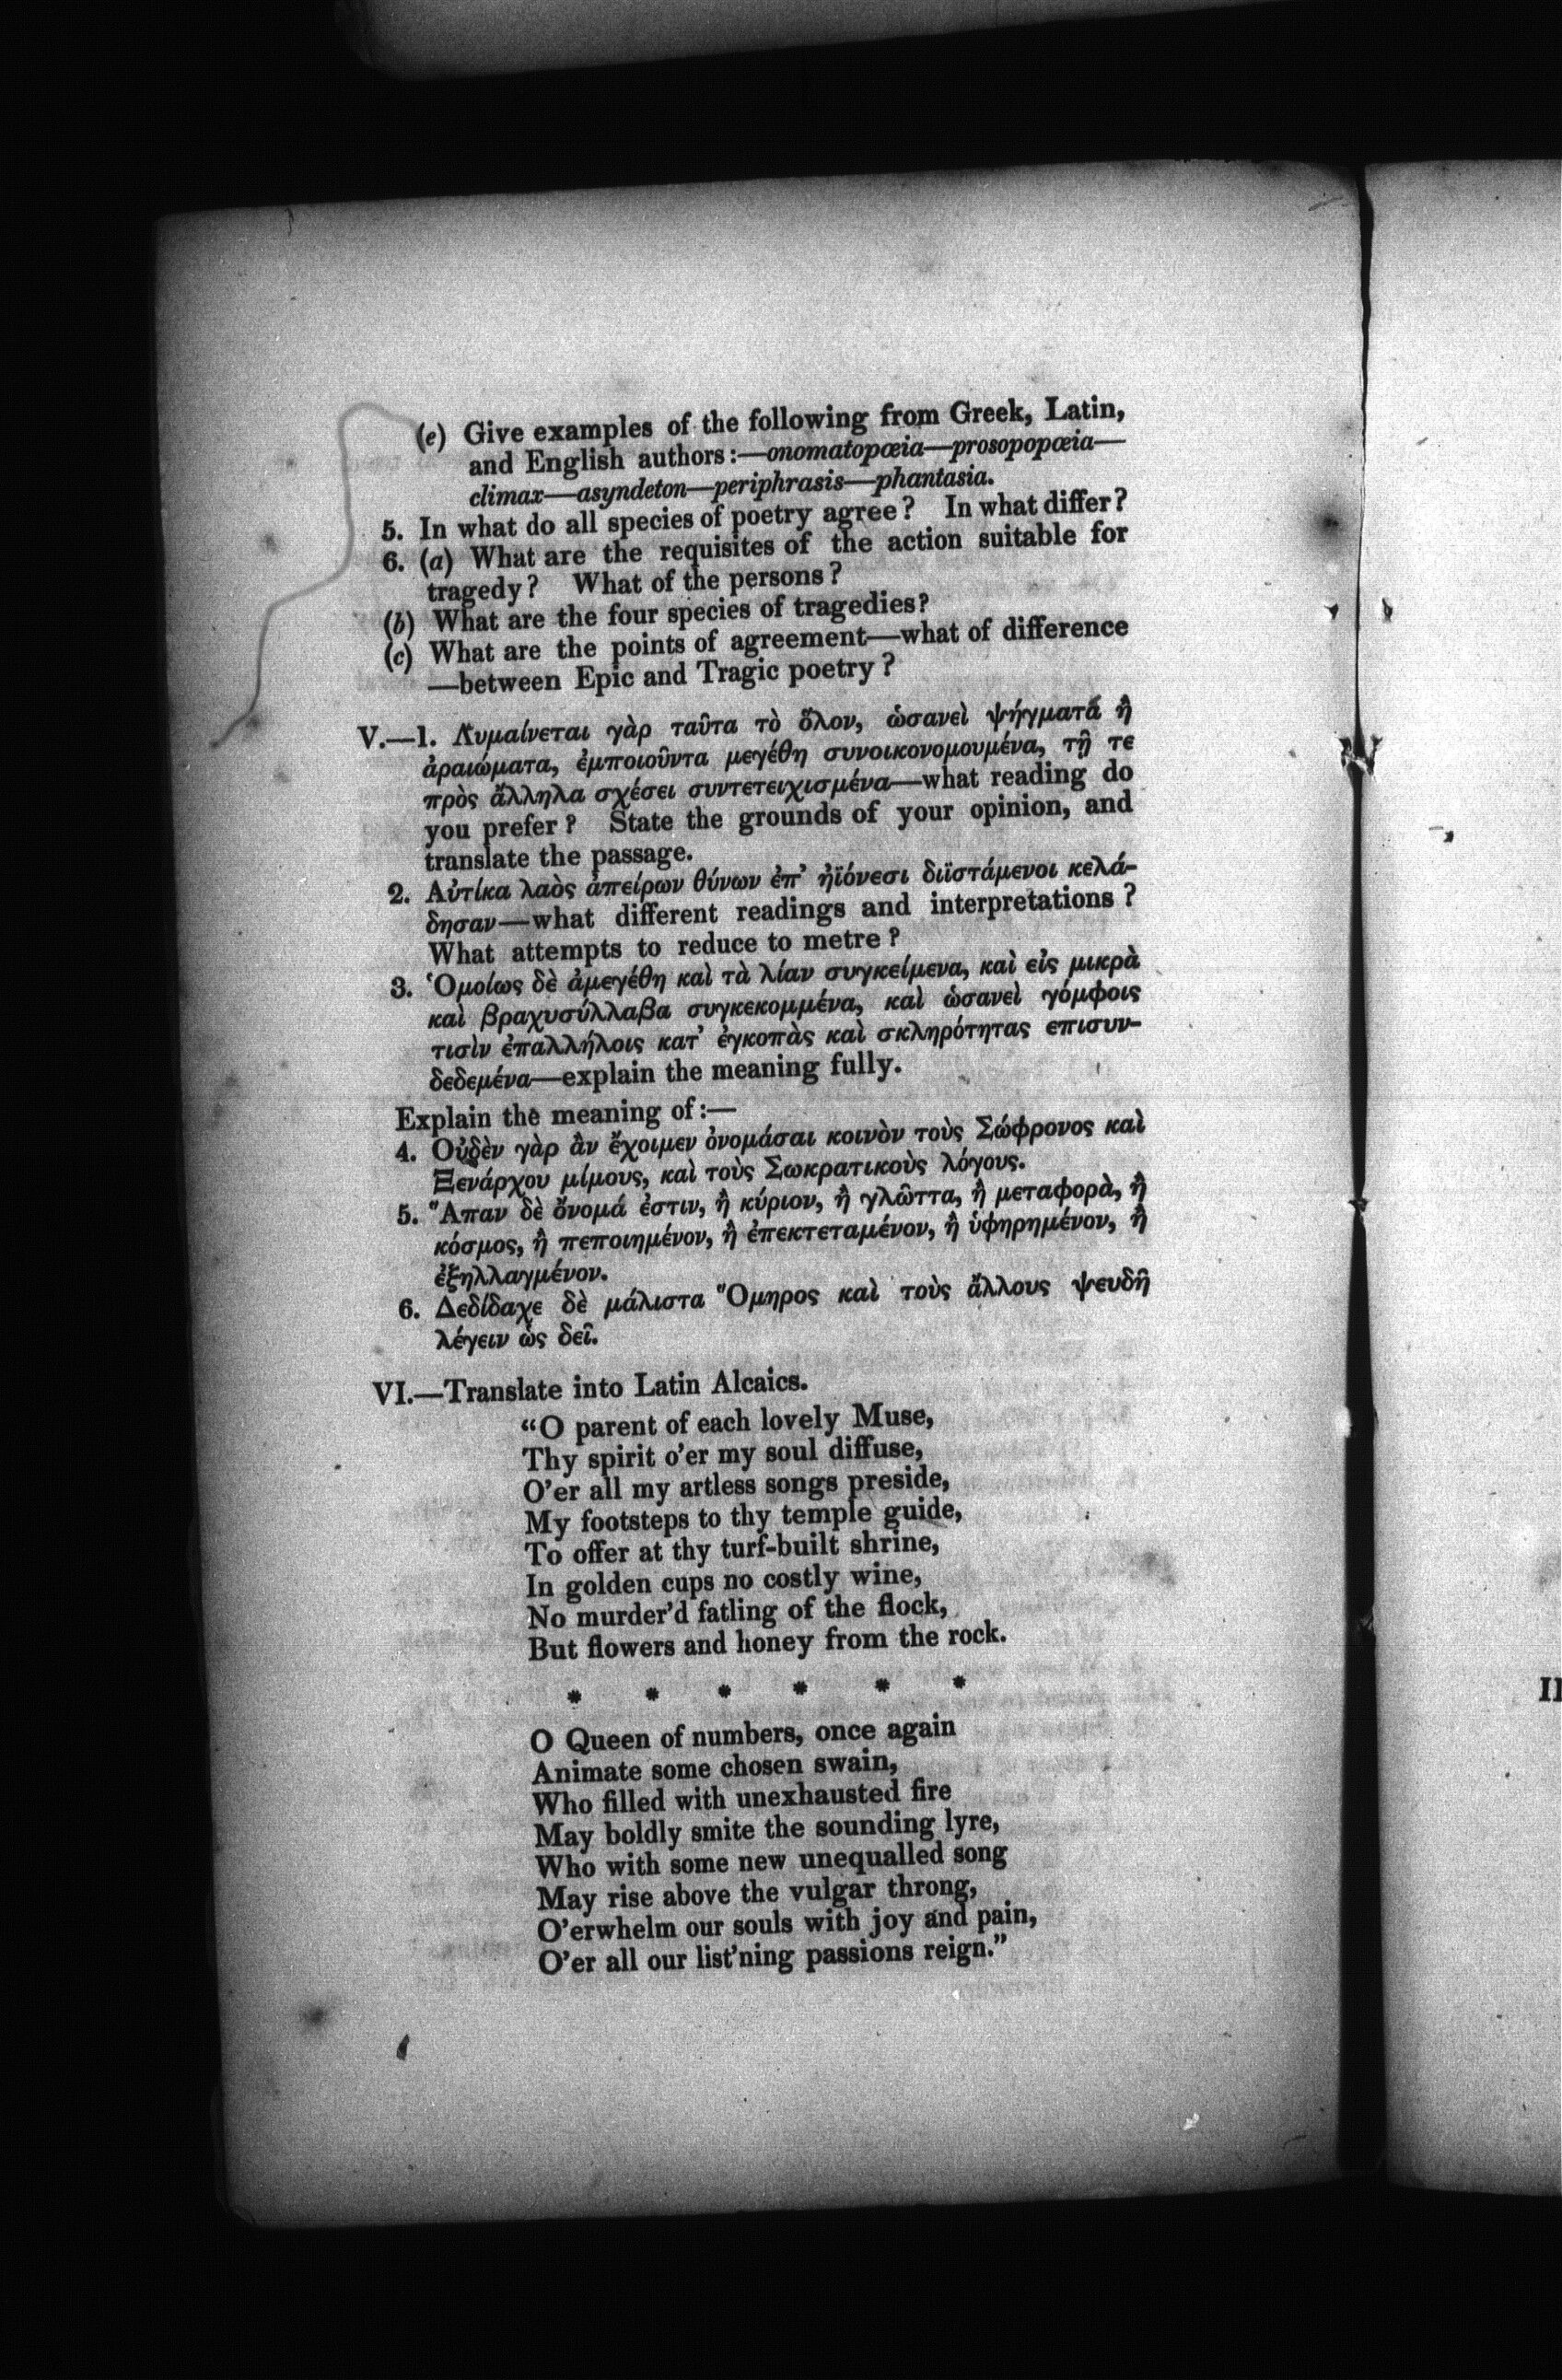 (e) Give examples of the following from Greek, Latin,
and English authors:—onomatopœia—prosopopœia—
climax—asyndeton—periphrasis—phantasia.
5. In what do all species of poetry agree? In what differ?
6. (a) What are the requisites of the action suitable for
tragedy? What of the persons?
(b) What are the four species of tragedies?
(c) What are the points of agreement—what of difference
—between Epic and Tragic poetry?
V.—1. Λυμαίνεται γὰρ ταῦτα τὸ ὅλον, ὡσανεὶ ψήγματά ἢ
ἀραιώματα, ἐμποιοῦντα μεγέθη συνοικονομουμένα, τῇ τε
πρὸς ἄλληλα σχέσει συντετειχισμένα—what reading do
you prefer? State the grounds of your opinion, and
translate the passage.
2. Αὐτίκα λαὸς ἀπείρων θύνων ἐπ’ ἠϊόνεσι διϊστάμενοι κελά-
δησαν—what different readings and interpretations?
What attempts to reduce to metre?
3. Ὁμοίως δὲ ἀμεγέθη καὶ τὰ λίαν συγκείμενα, καὶ εἰς μικρὰ
καὶ βραχυσύλλαβα συγκεκομμένα, καὶ ὡσανεὶ γόμφοις
τισὶν ἐπαλλήλοις κατ’ ἐγκοπὰς καὶ σκληρότητας επισυν-
δεδεμένα—explain the meaning fully.
Explain the meaning of:—
4. Οὐδὲν γὰρ ἂν ἔχοιμεν ὀνομάσαι κοινὸν τοὺς Σώφρονος καὶ
Ξενάρχου μίμους, καὶ τοὺς Σωκρατικοὺς λόγους.
5. Ἅπαν δὲ ὄνομά ἐστιν, ἢ κύριον, ἢ γλῶττα, ἢ μεταφορὰ, ἢ
κόσμος, ἢ πεποιημένον, ἢ ἐπεκτεταμένον, ἢ ὑφηρημένον, ἢ
ἐξηλλαγμένον.
6. Δεδίδαχε δὲ μάλιστα Ὅμηρος καὶ τοὺς ἄλλους ψευδῆ
λέγειν ὡς δεῖ.
VI.—Translate into Latin Alcaics.
“O parent of each lovely Muse,
Thy spirit o’er my soul diffuse,
O’er all my artless songs preside,
My footsteps to thy temple guide,
To offer at thy turf-built shrine,
In golden cups no costly wine,
No murder’d fatling of the flock,
But flowers and honey from the rock.
* * * * * *
O Queen of numbers, once again
Animate some chosen swain,
Who filled with unexhausted fire
May boldly smite the sounding lyre,
Who with some new unequalled song
May rise above the vulgar throng,
O’erwhelm our souls with joy and pain,
O’er all our list’ning passions reign.”
II